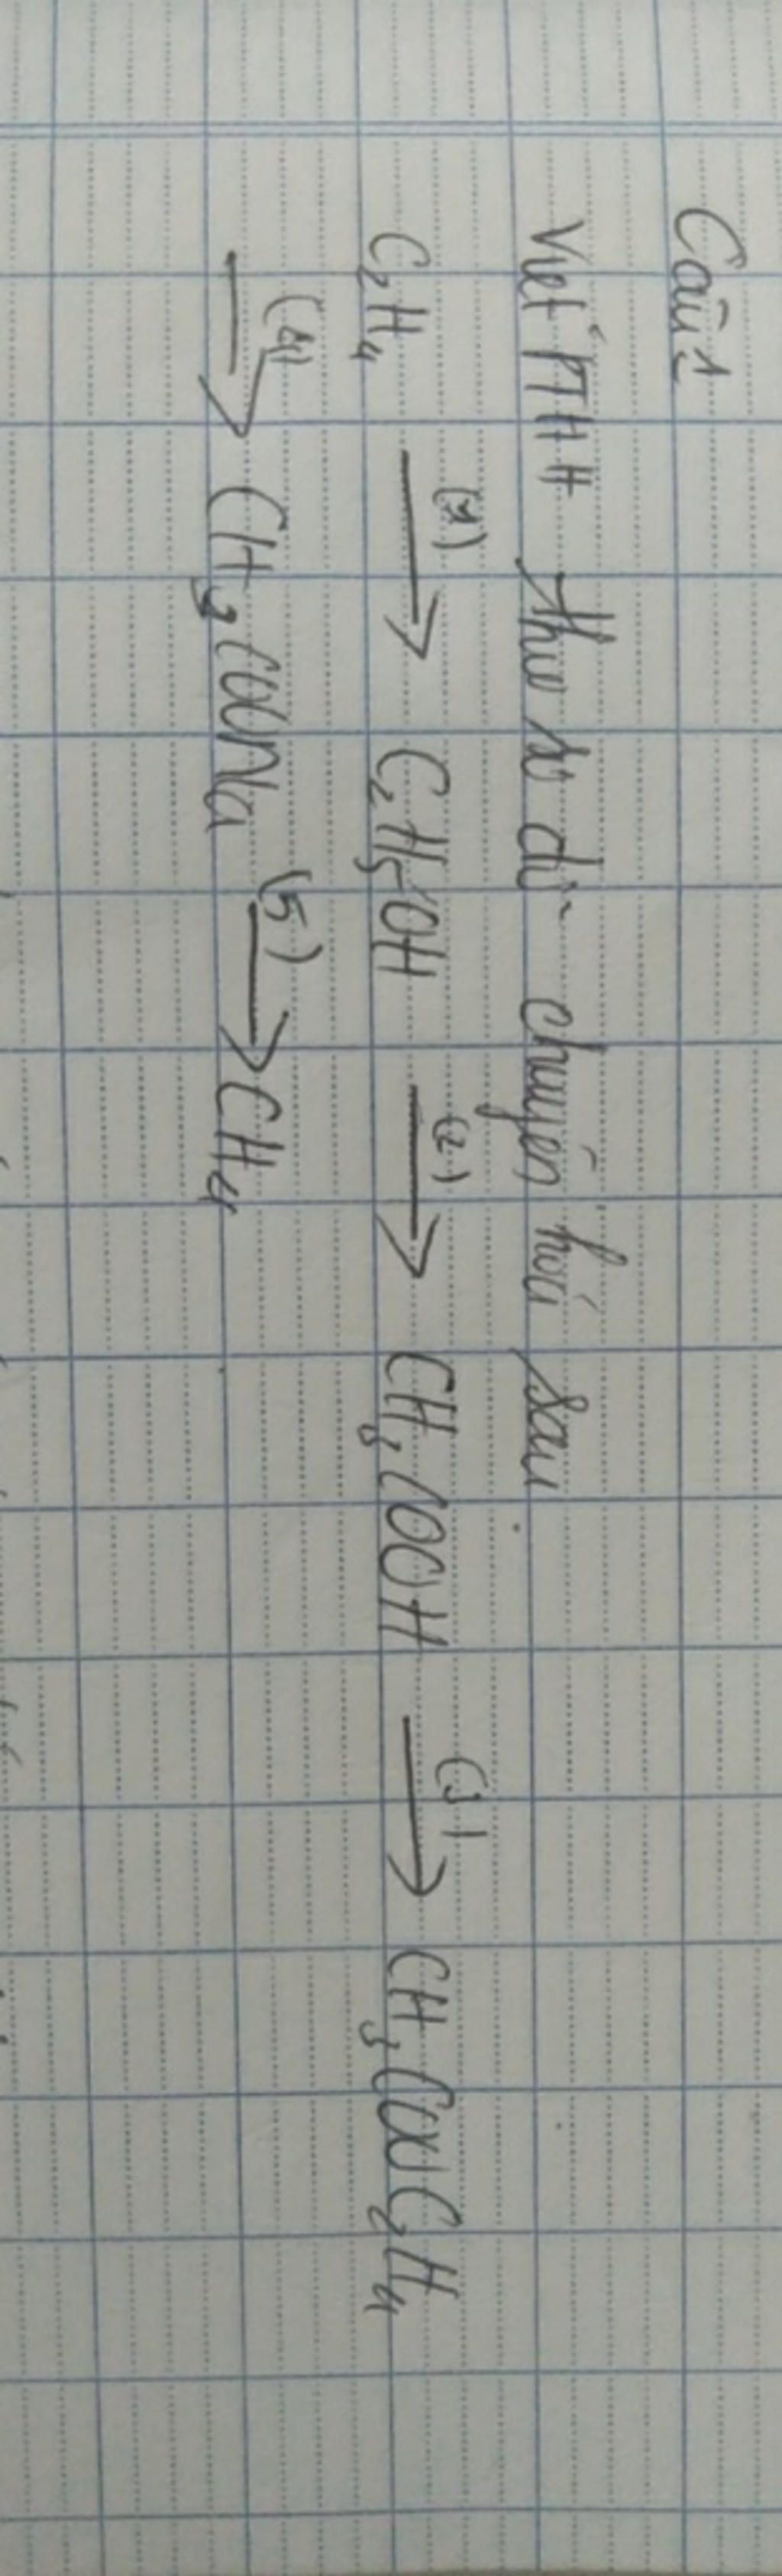 Câu 1
Viết PTHH theo sơ đồ chuyển hoá sau
C₂H₄ (1)→ C₂H₅OH (2)→ CH₃COOH (3)→ CH₃COOC₂H₄
(4)→ CH₃COONa (5)→ CH₄